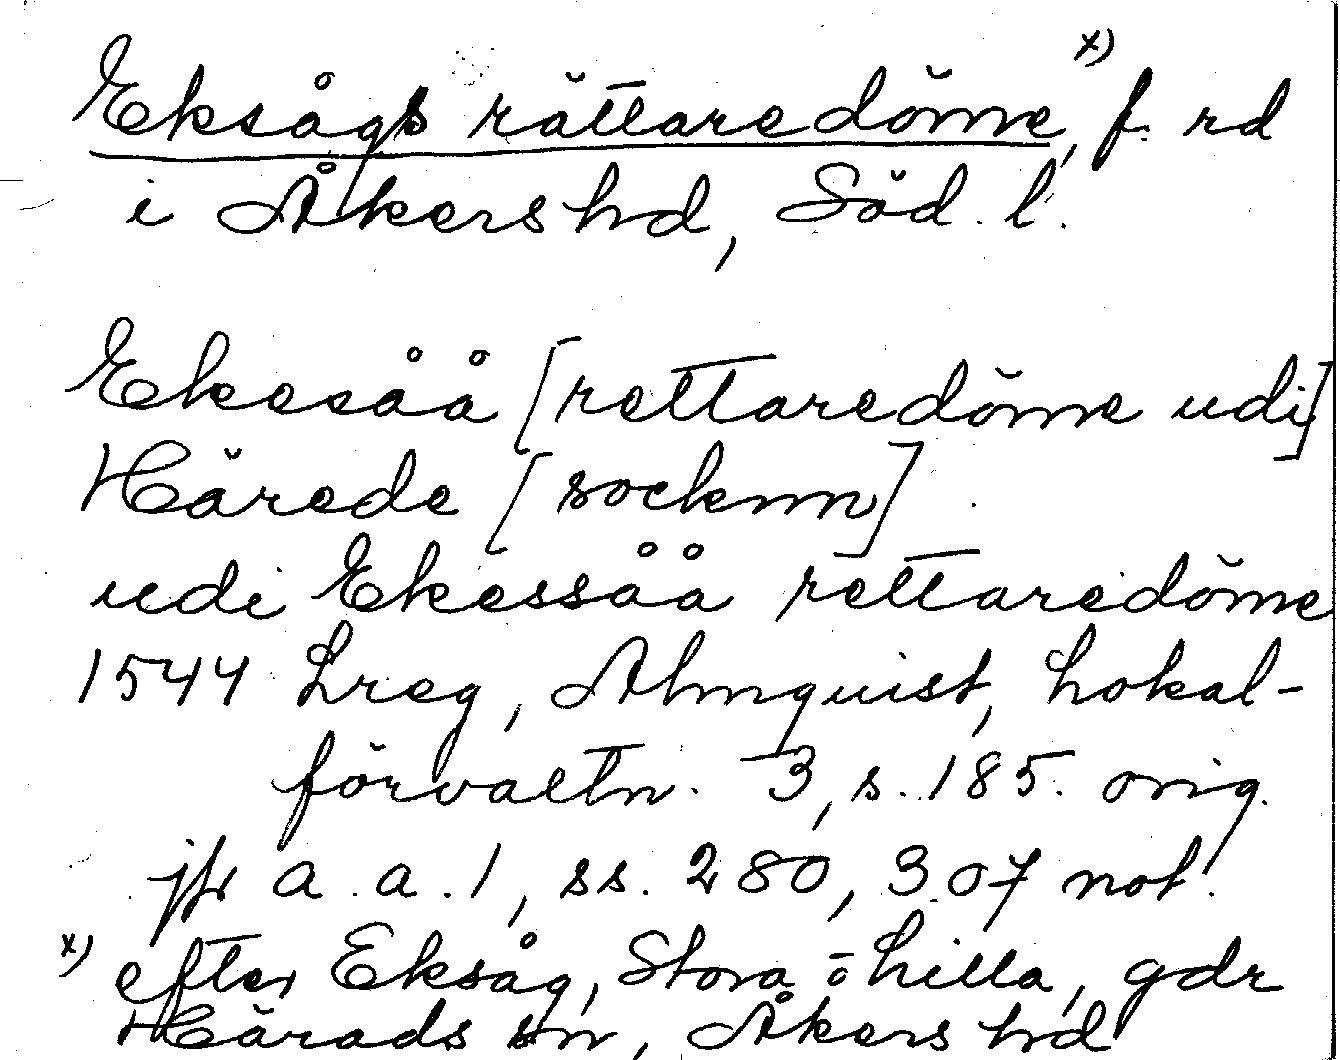 Eksågs rättaredöme, x) f. rd
i Åkers hd, Söd. l.
Ekesåå [rettaredöme udi]
Härede [socknn]
udi Ekessåå rettaredöme
1544 Lreg, Almquist, Lokal-
förvaltn. 3, s. 185. orig.
jfr a. a. 1, ss. 280, 307 not.
x) efter Eksåg, Stora o Lilla, gdr
Härads sn, Åkers hd